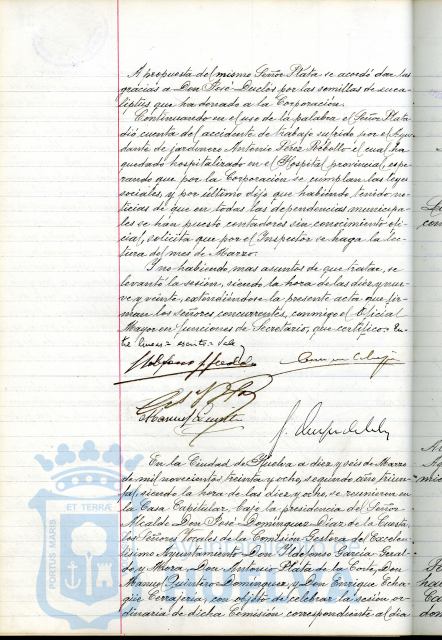 A propuesta del mismo Señor Plata se acordó dar las
gracias a Don José Duclós por las semillas de euca-
liptus que ha donado a la Corporación.
Continuando en el uso de la palabra el Señor Plata
dió cuenta del accidente de trabajo sufrido por el Ayu-
dante de jardinero Antonio Pérez Rebollo el cual ha
quedado hospitalizado en el Hospital provincial, espe-
rando que por la Corporación se cumplan las leyes
sociales, y por último dijo que habiendo tenido no-
ticias de que en todas las dependencias municipa-
les se han puesto contadores sin conocimiento ofi-
cial, solicita que por el Inspector se haga la lec-
tura del mes de Marzo.
Y no habiendo mas asuntos de que tratar, se
levantó la sesión, siendo la hora de las diez y nue-
ve y veinte, extendiéndose la presente acta que fir-
man los señores concurrentes, conmigo el Oficial
Mayor en funciones de Secretario, que certifico= En-
tre lineas= escrito= Vale
En la Ciudad de Huelva a diez y seis de Marzo
de mil novecientos treinta y ocho, segundo año triun-
fal, siendo la hora de las diez y ocho, se reunieron en
la Casa Capitular, bajo la presidencia del Señor
Alcalde Don José Domínguez Díaz de la Cuesta,
los Señores Vocales de la Comisión Gestora del Excelen-
tísimo Ayuntamiento Don Ildefonso García Geral-
do y Mora, Don Antonio Plata de la Corte, Don
Manuel Quintero Domínguez, y Don Enrique Echa-
güe Cerrajería, con objeto de celebrar la sesión or-
dinaria de dicha Comisión correspondiente al día
PORTUS MARIS ET TERRAE